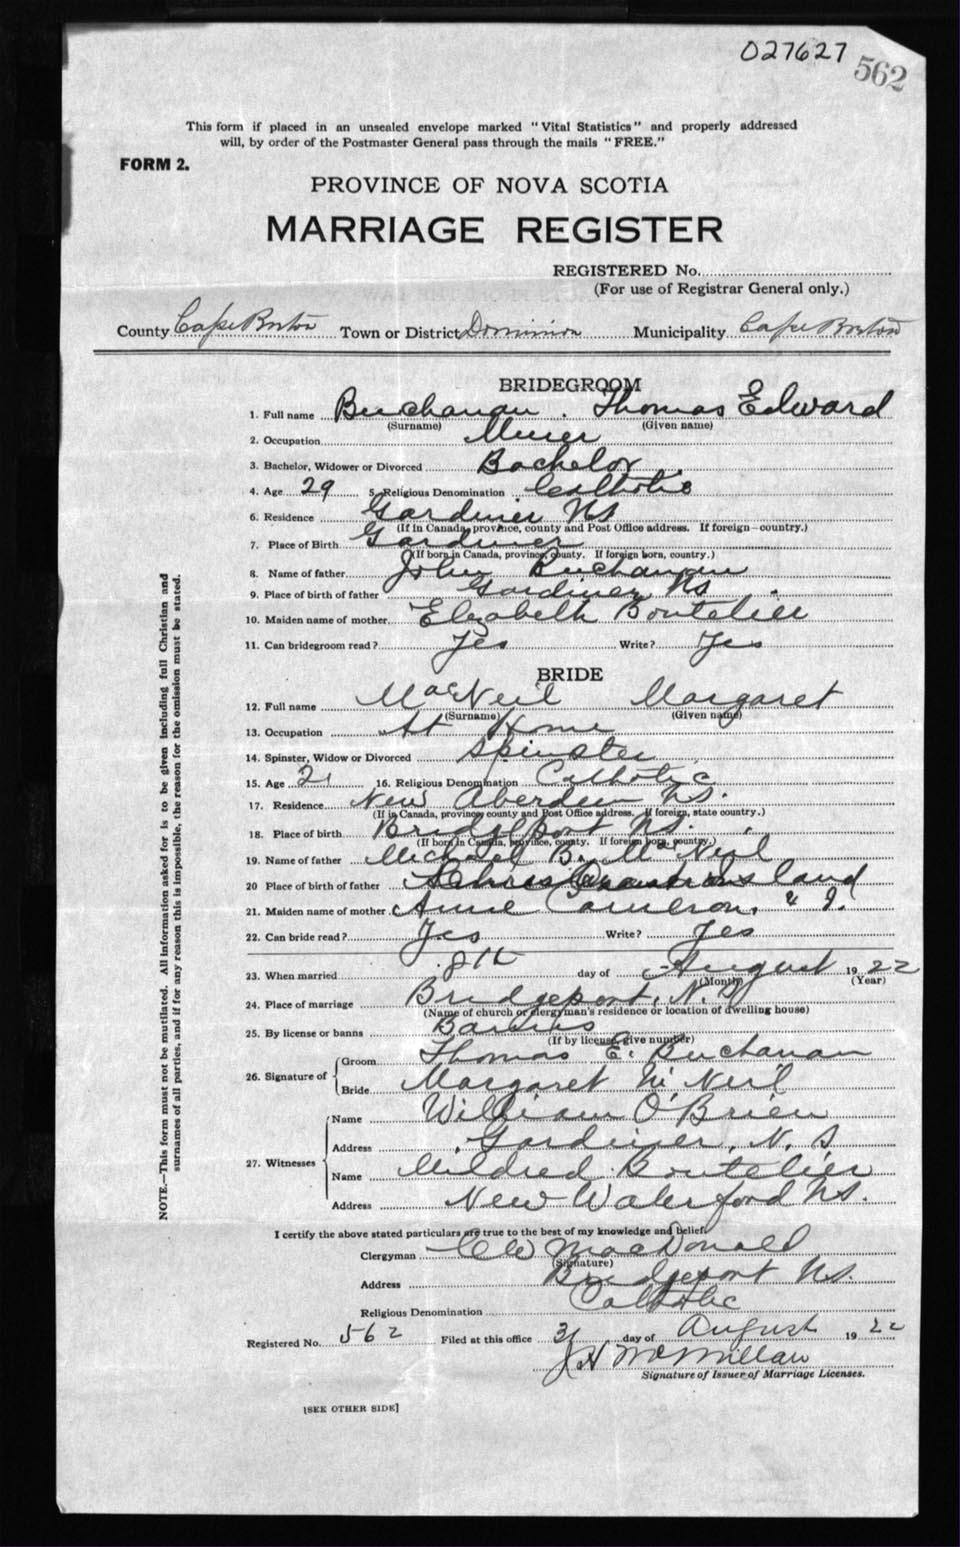 027627
562
This form if placed in an unsealed envelope marked "Vital Statistics" and properly addressed
will, by order of the Postmaster General pass through the mails "FREE."
FORM 2.
PROVINCE OF NOVA SCOTIA
MARRIAGE REGISTER
REGISTERED No.
(For use of Registrar General only.)
County Cape Breton Town or District Dominion Municipality Cape Breton
BRIDEGROOM
1. Full name Buchanan, Thomas Edward
(Surname) (Given name)
2. Occupation Miner
3. Bachelor, Widower or Divorced Bachelor
4. Age 29 5. Religious Denomination Catholic
6. Residence Gardiner NS
(If in Canada, province, county and Post Office address. If foreign—country.)
7. Place of Birth Gardiner
(If born in Canada, province, county. If foreign born, country.)
8. Name of father John Buchanan
9. Place of birth of father Gardiner NS
10. Maiden name of mother Elizabeth Boutelier
11. Can bridegroom read? Yes Write? Yes
BRIDE
12. Full name MacNeil Margaret
(Surname) (Given name)
13. Occupation At Home
14. Spinster, Widow or Divorced Spinster
15. Age 21 16. Religious Denomination Catholic
17. Residence New Aberdeen N.S.
(If in Canada, province, county and Post Office address. If foreign, state country.)
18. Place of birth Bridgeport N.S.
(If born in Canada, province, county. If foreign born, country.)
19. Name of father Michael B. McNeil
20 Place of birth of father Island
21. Maiden name of mother Annie Cameron
22. Can bride read? Yes Write? Yes
23. When married 8th day of August 1922
(Month) (Year)
24. Place of marriage Bridgeport, N.S.
(Name of church or clergyman's residence or location of dwelling house)
25. By license or banns Banns
(If by license, give number)
26. Signature of Groom Thomas E. Buchanan
Bride Margaret McNeil
27. Witnesses Name William O'Brien
Address Gardiner, N.S
Name Mildred Boutelier
Address New Waterford N.S.
I certify the above stated particulars are true to the best of my knowledge and belief.
Clergyman MacDonald
(Signature)
Address Bridgeport N.S.
Religious Denomination Catholic
Registered No. 562 Filed at this office 31 day of August 1922
J H McMillan
Signature of Issuer of Marriage Licenses.
[SEE OTHER SIDE]
NOTE.—This form must not be mutilated. All information asked for is to be given including full Christian and
surnames of all parties, and if for any reason this is impossible, the reason for the omission must be stated.